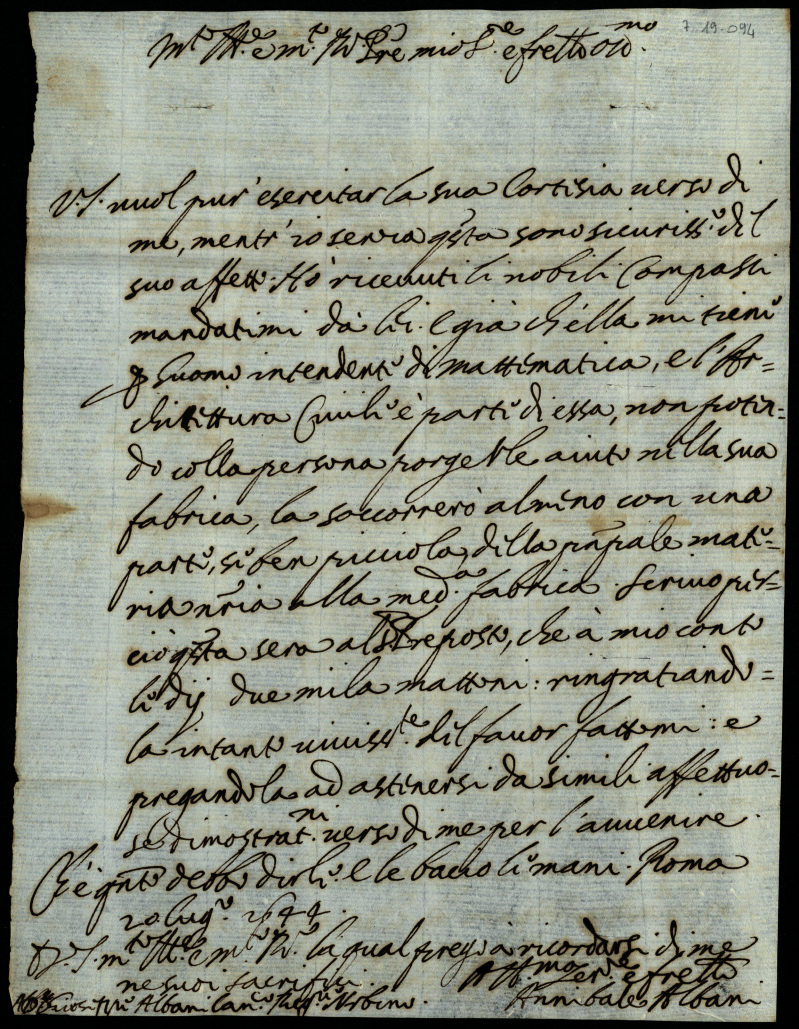 7-19-094
m.to Ill.re e m.to R.do P.re mio S.re e fre.llo oss.mo
V.S. vuol pur' esercitar la sua Cortesia verso di
me, mentr' io senza q.sta sono sicuriss.o del
suo affetto. Hò ricevuti li nobili Compassi
mandatimi da lei. E già ch'ella mi tiene
p huomo intendente di mattematica, e l'Ar=
chitettura Civile è parte di essa, non poten=
do colla persona porgerle aiuto nella sua
fabrica, la soccorrerò almeno con una
parte, se ben picciola, della pn̄pale mate=
ria nr̄ia alla med.a fabrica. Scrivo per=
ciò q̄sta sera al preposto, che à mio conto
le dij due mila mattoni: ringratiando=
la intanto viviss.te del favor fattomi: e
pregandola ad astenersi da simili affettuo=
se dimostrat.ni verso di me per l'avvenire.
Ch'è q̄nto debbo dirle. E le bacio le mani. Roma
20 lug.o 1644.
D. V.S. m.to Ill.re e m.to R.da la qual prego à ricordarsi di me
ne suoi sacrifisi.
Aff.mo Ser.re e fre.llo
Annibale Albani
Albani Urbino.